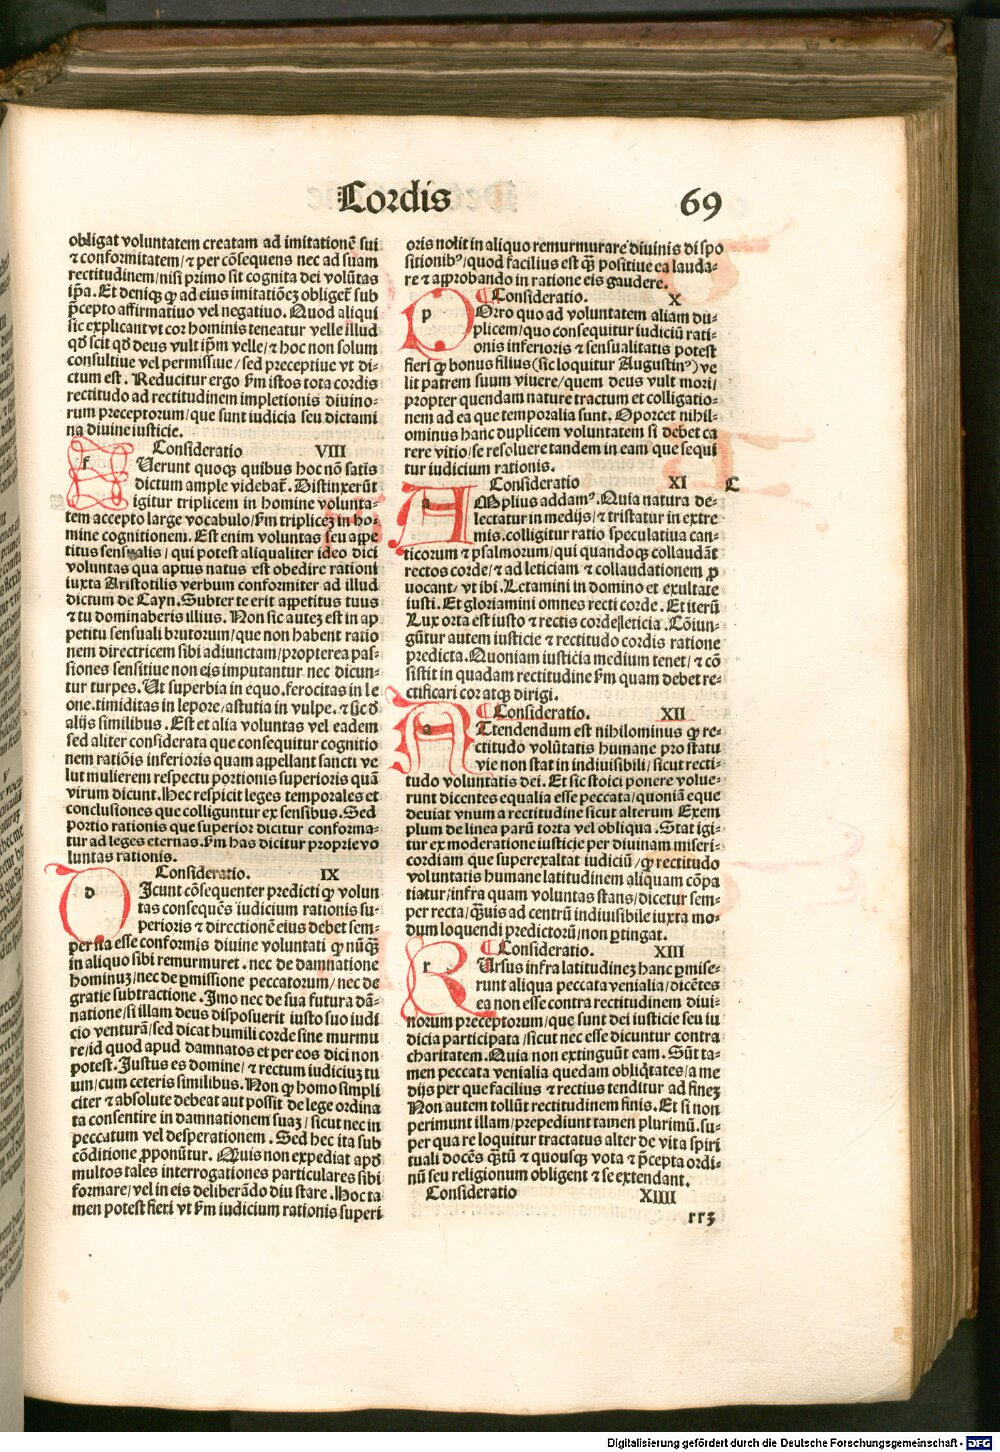 Cordis 69
obligat voluntatem creatam ad imitationē sui
⁊ conformitatem/⁊ per cōsequens nec ad suam
rectitudinem/nisi primo sit cognita dei volūtas
ip̄a. Et deniqꝫ ꝙ ad eius imitatiōeꝫ obliget̄ sub
p̄cepto affirmatiuo vel negatiuo. Quod aliqui
sic explicant vt cor hominis teneatur velle illud
qd̄ scit qd̄ deus vult ip̄m velle/⁊ hoc non solum
consultiue vel permissiue/sed preceptiue vt di⸗
ctum est. Reducitur ergo ẜm istos tota cordis
rectitudo ad rectitudinem impletionis diuino⸗
rum preceptorum/que sunt iudicia seu dictami
na diuine iusticie.
Consideratio VIII
f Uerunt quoqꝫ quibus hoc nō satis
dictum ample videbat̄. Distinxerūt
igitur triplicem in homine volunta⸗
tem accepto large vocabulo/ẜm tripliceꝫ in ho⸗
mine cognitionem. Est enim voluntas seu appe
titus sensualis/qui potest aliqualiter ideo dici
voluntas qua aptus natus est obedire rationi
iuxta Aristotilis verbum conformiter ad illud
dictum de Cayn. Subter te erit appetitus tuus
⁊ tu dominaberis illius. Non sic auteꝫ est in ap
petitu sensuali brutorum/que non habent ratio
nem directricem sibi adiunctam/propterea pas⸗
siones sensitiue non eis imputantur nec dicun⸗
tur turpes. Ut superbia in equo. ferocitas in le
one. timiditas in lepore/astutia in vulpe. ⁊ sic d̄
alijs similibus. Est et alia voluntas vel eadem
sed aliter considerata que consequitur cognitio
nem ratiōis inferioris quam appellant sancti ve
lut mulierem respectu portionis superioris quā
virum dicunt. Hec respicit leges temporales et
conclusiones que colliguntur ex sensibus. Sed
portio rationis que superior dicitur conforma⸗
tur ad leges eternas. ẜm has dicitur proprie vo
luntas rationis.
Consideratio. IX
d Icunt cōsequenter predicti ꝙ volun
tas consequēs iudicium rationis su⸗
perioris ⁊ directionē eius debet sem⸗
per ita esse conformis diuine voluntati ꝙ nūꝗ̄
in aliquo sibi remurmuret. nec de damnatione
hominuꝫ/nec de ꝑmissione peccatorum/nec de
gratie subtractione. Imo nec de sua futura dā⸗
natione/si illam deus disposuerit iusto suo iudi
cio venturā/sed dicat humili corde sine murmu
re/id quod apud damnatos et per eos dici non
potest. Justus es domine/⁊ rectum iudiciuꝫ tu
um/cum ceteris similibus. Non ꝙ homo simpli
citer ⁊ absolute debeat aut possit de lege ordina
ta consentire in damnationem suaꝫ/sicut nec in
peccatum vel desperationem. Sed hec ita sub
cōditione ꝓponūtur. Quis non expediat apd̄
multos tales interrogationes particulares sibi
formare/vel in eis deliberādo diu stare. Hoc ta
men potest fieri vt ẜm iudicium rationis superi
oris nolit in aliquo remurmurare diuinis dispo
sitionibꝰ/quod facilius est ꝗ̄ positiue ea lauda⸗
re ⁊ approbando in ratione eis gaudere.
¶ Consideratio. X
p Orro quo ad voluntatem aliam du⸗
plicem/quo consequitur iudiciū rati⸗
onis inferioris ⁊ sensualitatis potest
fieri ꝙ bonus filius(sic loquitur Augustinꝰ)ve
lit patrem suum viuere/quem deus vult mori/
propter quendam nature tractum et colligatio⸗
nem ad ea que temporalia sunt. Oporcet nihil⸗
ominus hanc duplicem voluntatem si debet ca
rere vitio/se resoluere tandem in eam que sequi
tur iudicium rationis.
Consideratio XI C
a Mplius addamꝰ. Quia natura de⸗
lectatur in medijs/⁊ tristatur in extre
mis. colligitur ratio speculatiua can⸗
ticorum ⁊ psalmorum/qui quandoqꝫ collaudāt
rectos corde/⁊ ad leticiam ⁊ collaudationem ꝓ
uocant/vt ibi. Letamini in domino et exultate
iusti. Et gloriamini omnes recti corde. Et iterū
Lux orta est iusto ⁊ rectis corde leticia. Cōiun⸗
gūtur autem iusticie ⁊ rectitudo cordis ratione
predicta. Quoniam iusticia medium tenet/⁊ cō
sistit in quadam rectitudine ẜm quam debet re⸗
ctificari cor atqꝫ dirigi.
¶ Consideratio. XII
a Ttendendum est nihilominus ꝙ re⸗
ctitudo volūtatis humane pro statu
vie non stat in indiuisibili/sicut recti⸗
tudo voluntatis dei. Et sic stoici ponere volue⸗
runt dicentes equalia esse peccata/quoniā eque
deuiat vnum a rectitudine sicut alterum Exem
plum de linea parū torta vel obliqua. Stat igi⸗
tur ex moderatione iusticie per diuinam miseri⸗
cordiam que superexaltat iudiciū/ꝙ rectitudo
voluntatis humane latitudinem aliquam cōpa
tiatur/infra quam voluntas stans/dicetur sem⸗
per recta/ꝗ̄uis ad centrū indiuisibile iuxta mo⸗
dum loquendi predictorū/non ꝑtingat.
¶ Consideratio. XIII
r Ursus infra latitudineꝫ hanc ꝑmise⸗
runt aliqua peccata venialia/dicētes
ea non esse contra rectitudinem diui⸗
norum preceptorum/que sunt dei iusticie seu iu
dicia participata/sicut nec esse dicuntur contra
charitatem. Quia non extinguūt eam. Sūt ta⸗
men peccata venialia quedam obliq̄tates/a me
dijs per que facilius ⁊ rectius tenditur ad fineꝫ
Non autem tollūt rectitudinem finis. Et si non
perimunt illam/prepediunt tamen plurimū. su⸗
per qua re loquitur tractatus alter de vita spiri
tuali docēs ꝗ̄tū ⁊ quousqꝫ vota ⁊ p̄cepta ordi⸗
nū seu religionum obligent ⁊ se extendant.
Consideratio XIIII
rr3
Digitalisierung gefördert durch die Deutsche Forschungsgemeinschaft - DFG